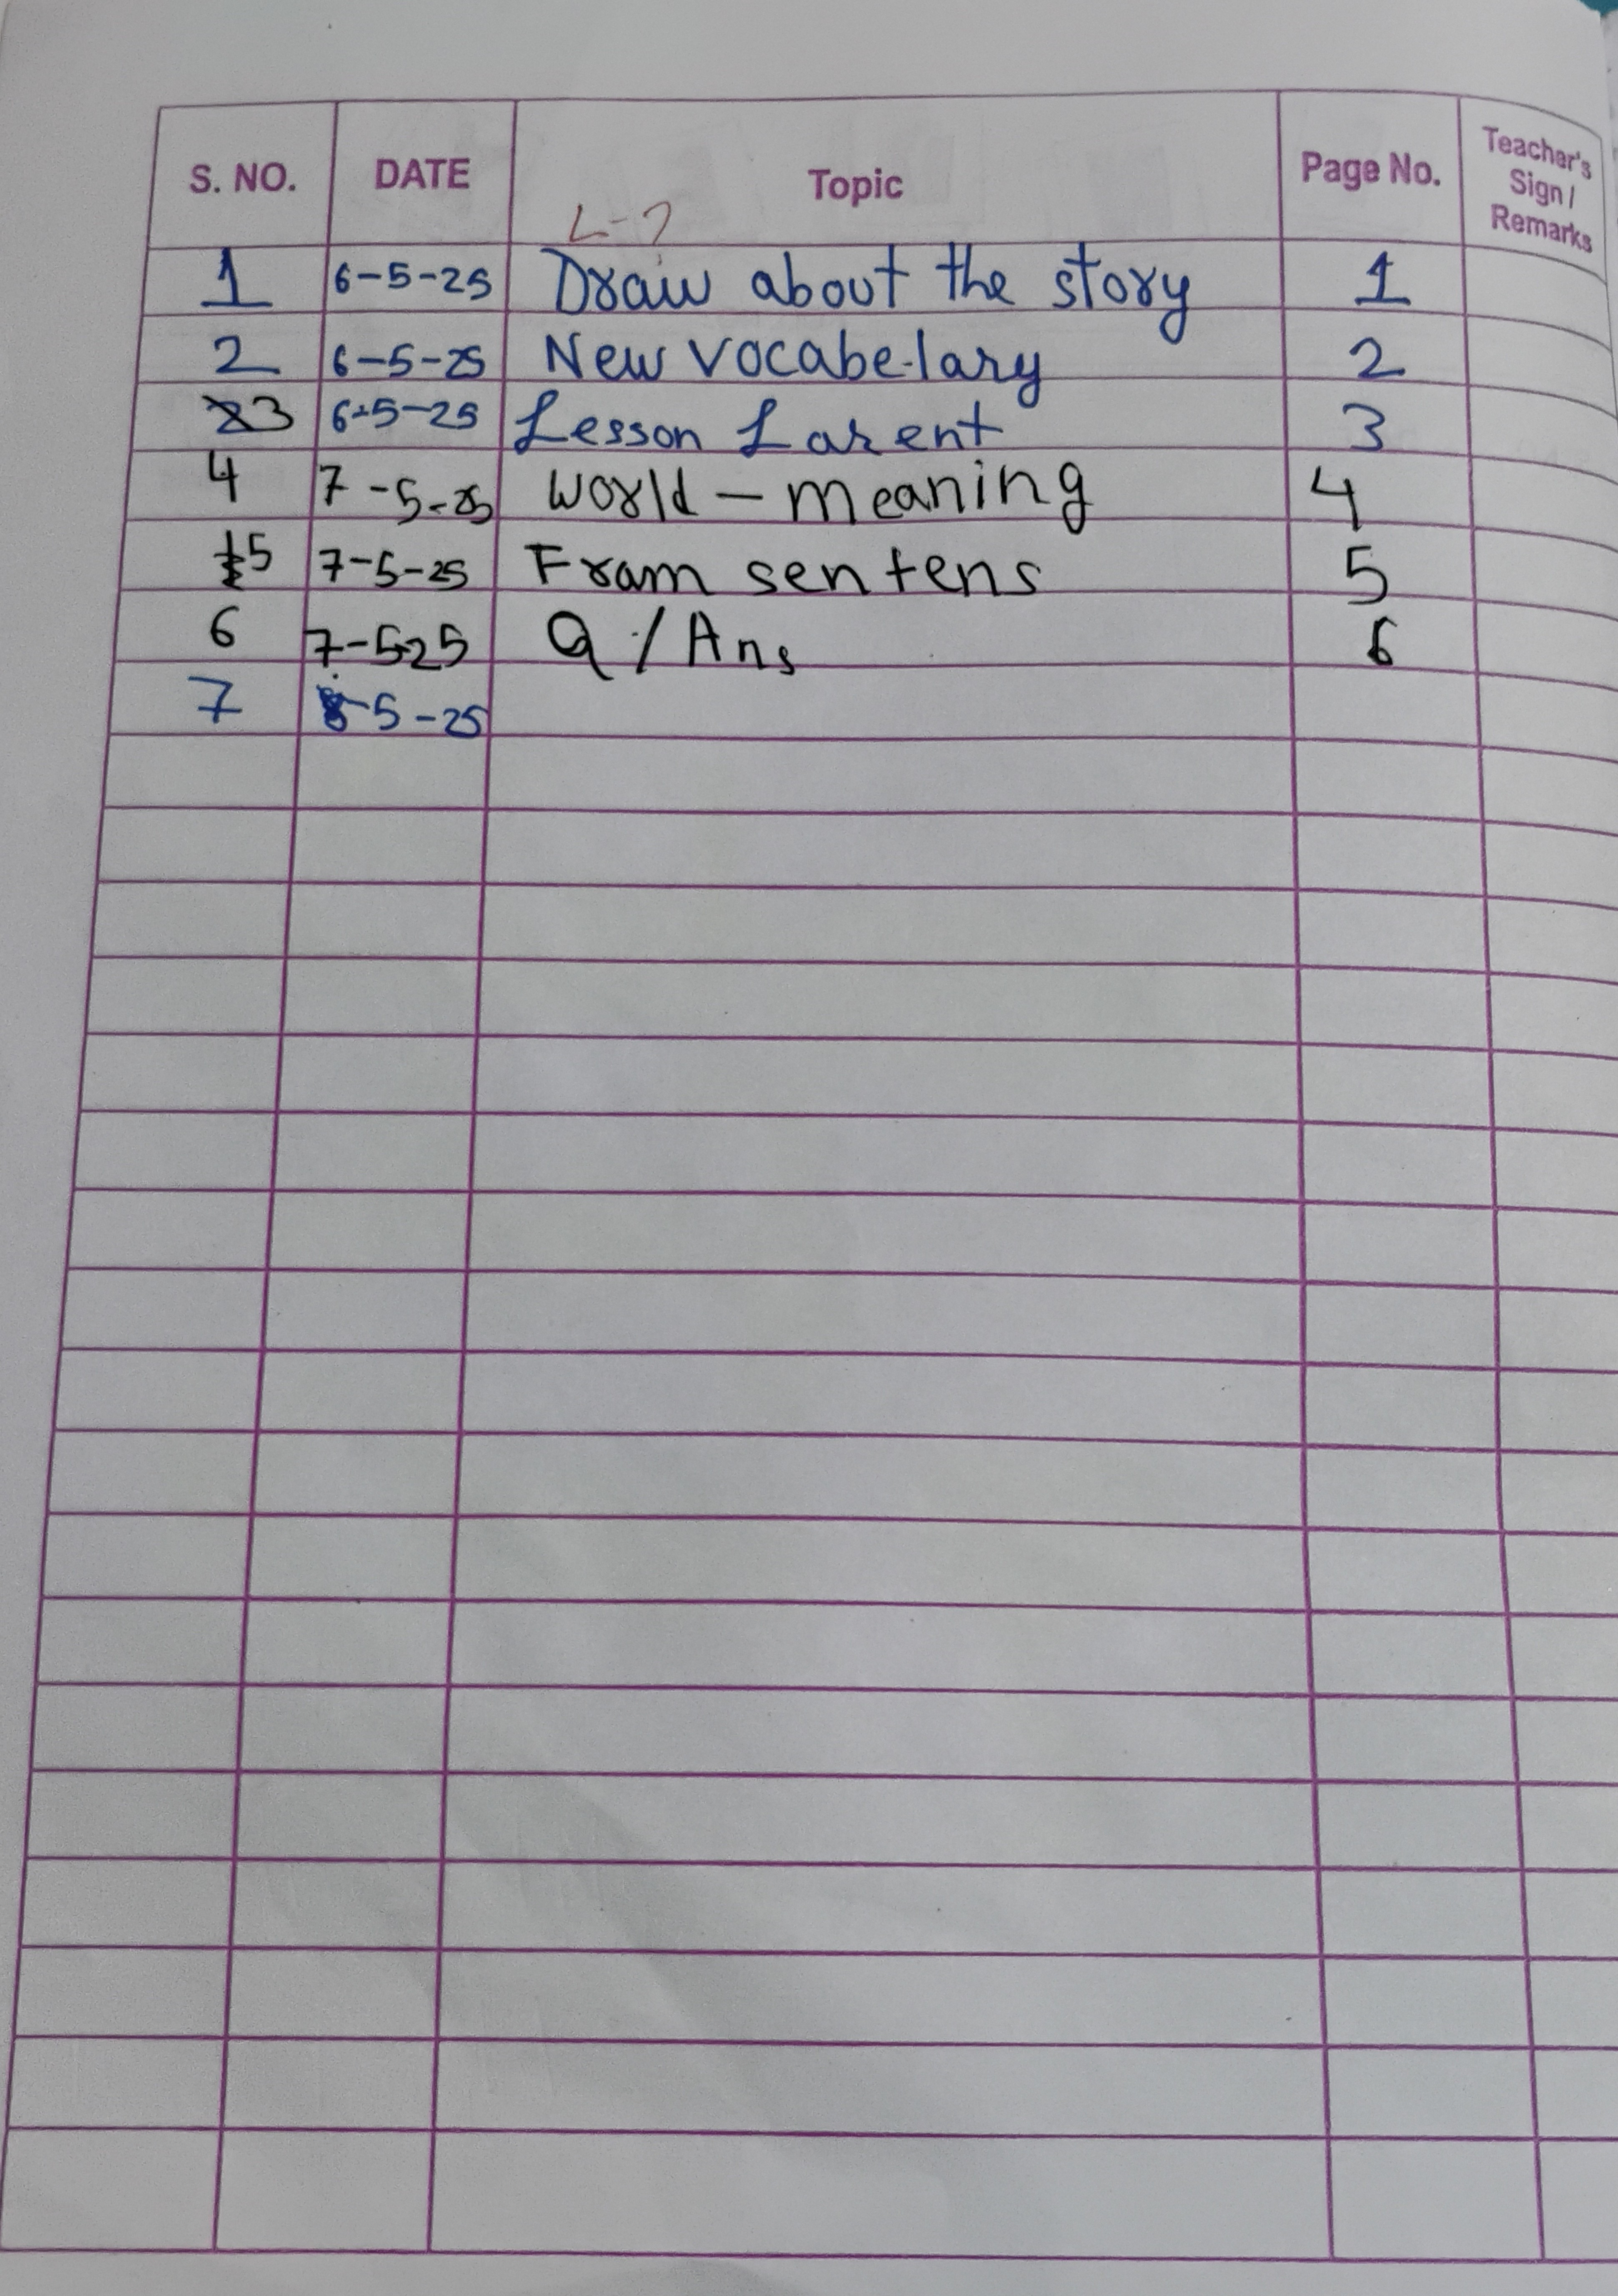 S. NO. DATE Topic Page No. Teacher's Sign / Remarks
L-2
1 6-5-25 Draw about the story 1
2 6-5-25 New vocabelary 2
3 6-5-25 Lesson Larent 3
4 7-5-25 world - meaning 4
5 7-5-25 Fram sentens 5
6 7-5-25 Q/Ans 6
7 8-5-25